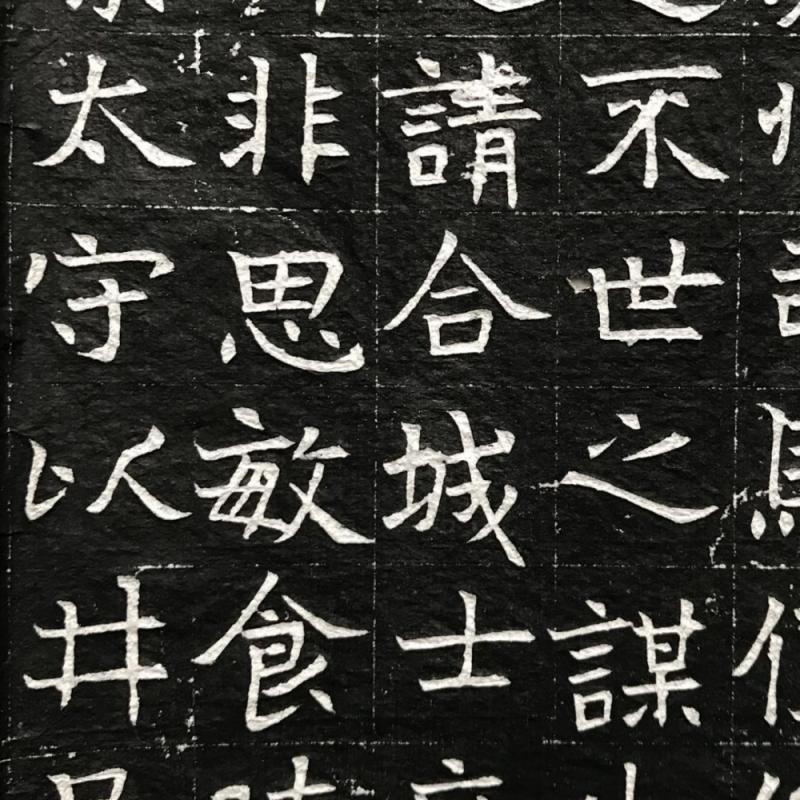 不世之謀
請合城士
非思敏食
太守以井